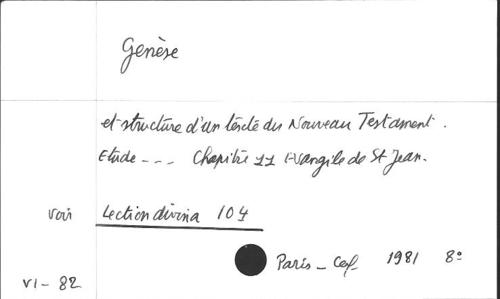 Genèse
et structure d'un texte du Nouveau Testament.
Etude --- Chapitre 11 Evangile de St Jean.
voir Lectio divina 104
Paris - Cerf 1981 8°
VI - 82